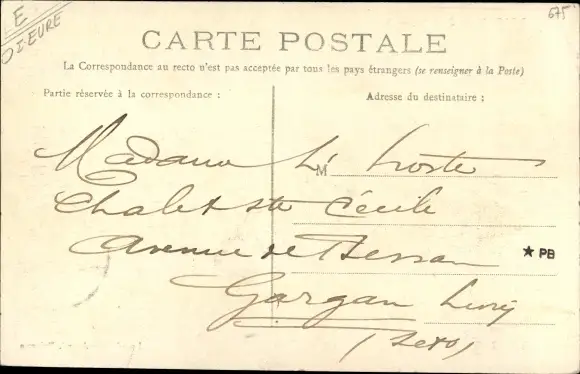 E
675
D I-EURE
CARTE POSTALE
La Correspondance au recto n'est pas acceptée par tous les pays étrangers (se renseigner à la Poste)
Partie réservée à la correspondance :
Adresse du destinataire :
M
Madame
Chalet Ste Cécile
Avenue de
★ PB
Gargan Livry